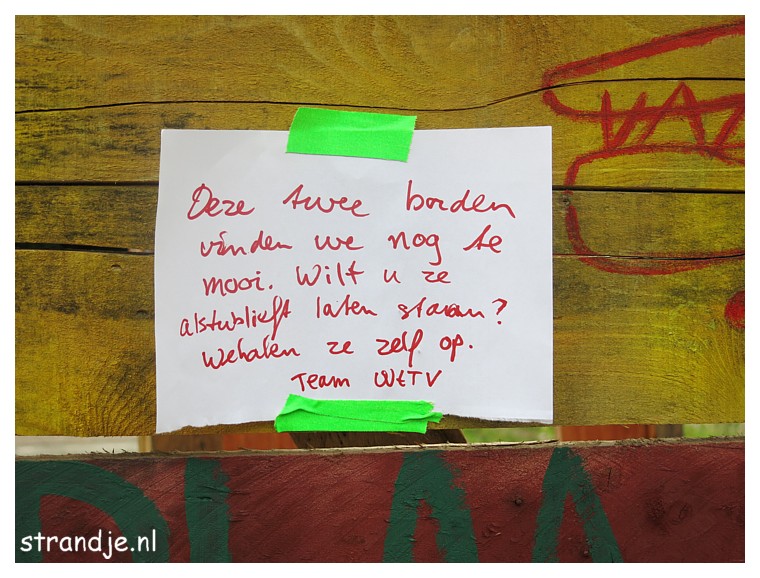 Deze twee borden
vinden we nog te
mooi. Wilt u ze
alstublieft laten staan?
We halen ze zelf op.
Team WtTV
VAN
strandje.nl